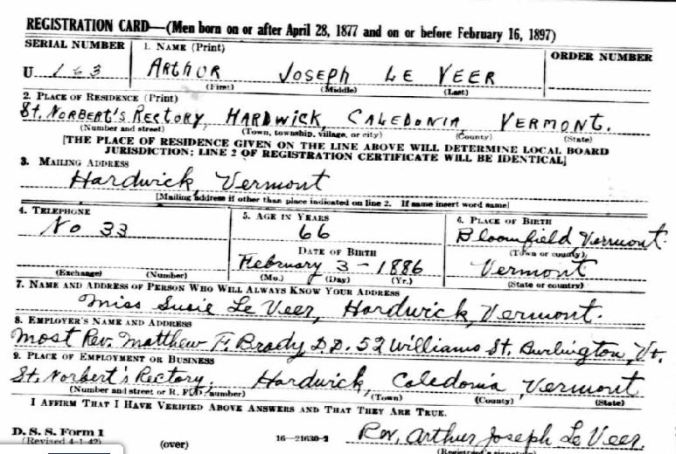 REGISTRATION CARD—(Men born on or after April 28, 1877 and on or before February 16, 1897)
SERIAL NUMBER 1. NAME (Print) ORDER NUMBER
U 163 ARTHUR JOSEPH LE VEER
(First) (Middle) (Last)
2. PLACE OF RESIDENCE (Print)
St. NORBERT'S RECTORY, HARDWICK, CALEDONIA VERMONT.
(Number and street) (Town, township, village, or city) (County) (State)
[THE PLACE OF RESIDENCE GIVEN ON THE LINE ABOVE WILL DETERMINE LOCAL BOARD
JURISDICTION; LINE 2 OF REGISTRATION CERTIFICATE WILL BE IDENTICAL]
3. MAILING ADDRESS
Hardwick, Vermont
[Mailing address if other than place indicated on line 2. If same insert word same]
4. TELEPHONE 5. AGE IN YEARS 6. PLACE OF BIRTH
No 33 66 Bloomfield Vermont.
DATE OF BIRTH (Town or county)
February 3 - 1886 Vermont
(Exchange) (Number) (Mo.) (Day) (Yr.) (State or country)
7. NAME AND ADDRESS OF PERSON WHO WILL ALWAYS KNOW YOUR ADDRESS
Miss Susie Le Veer, Hardwick, Vermont.
8. EMPLOYER'S NAME AND ADDRESS
Most Rev. Matthew F. Brady, D.D. 52 Williams St. Burlington, Vt.
9. PLACE OF EMPLOYMENT OR BUSINESS
St. Norbert's Rectory, Hardwick, Caledonia, Vermont
(Number and street or R. F. D. number) (Town) (County) (State)
I AFFIRM THAT I HAVE VERIFIED ABOVE ANSWERS AND THAT THEY ARE TRUE.
D. S. S. Form 1
(Revised 4-1-42) (over) 16—21630-2 Rev. Arthur Joseph Le Veer.
(Registrant's signature)